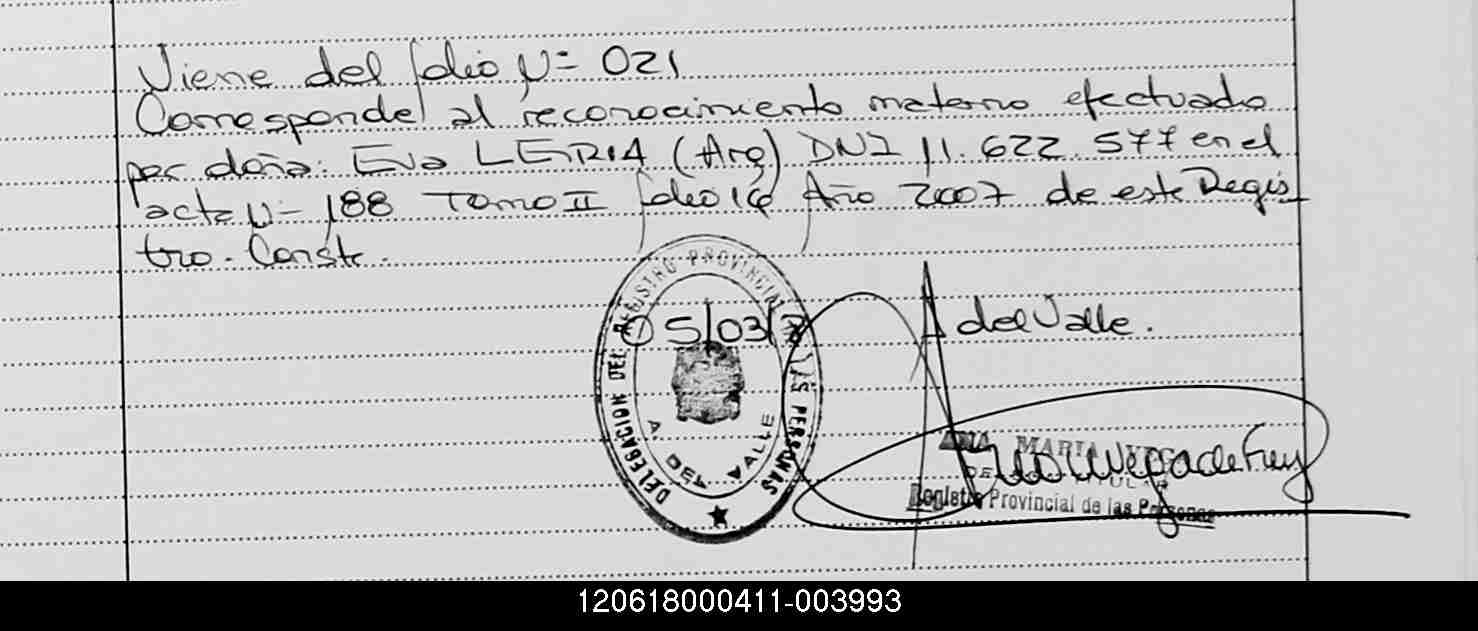 Viene del folio Nº 021
Corresponde al reconocimiento materno efectuado
por doña: Eva LERIA (Arg) DNI 11.622.577 en el
acta Nº 188 Tomo II folio 14 Año 2007 de este Regis
tro. Conste.
DELEGACION DEL REGISTRO PROVINCIAL LAS PERSONAS
05/03/
A DEL VALLE
A del Valle.
ANA MARIA
Registro Provincial de las Personas
120618000411-003993